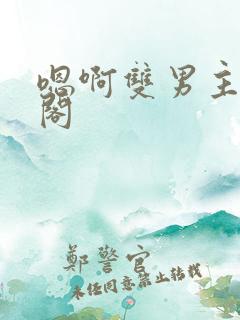 嗯啊雙男主
閣
鄭警官
未经同意禁止转载